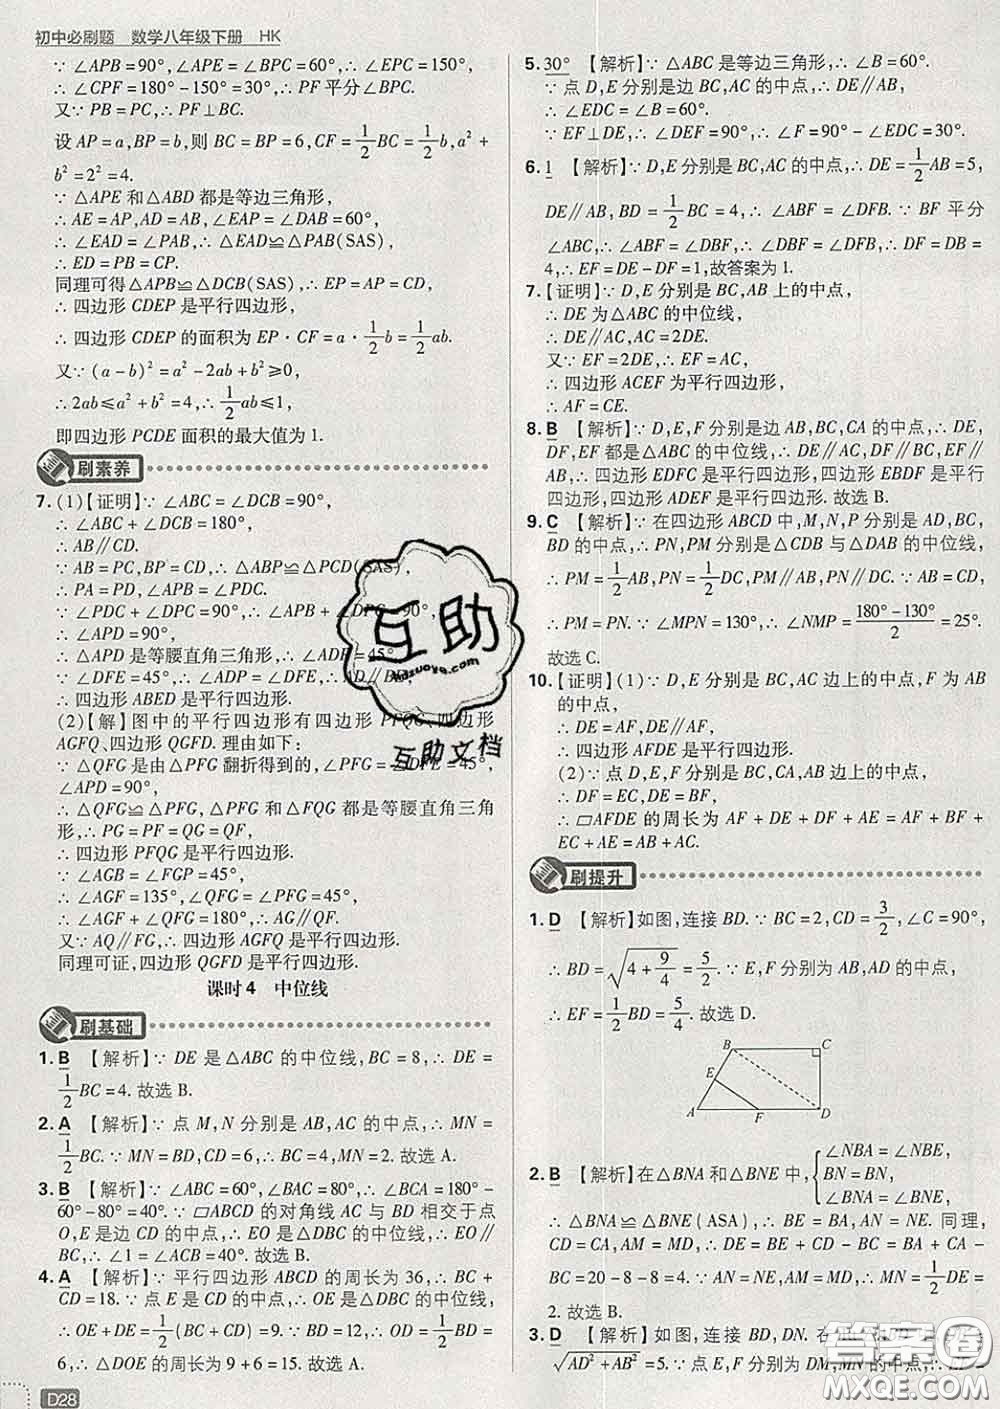 初中必刷题 数学八年级下册 HK
∵ ∠APB=90°,∠APE=∠BPC=60°,∴ ∠EPC=150°,
∴ ∠CPF=180°-150°=30°,∴ PF 平分∠BPC.
又∵ PB=PC,∴ PF⊥BC.
设 AP=a,BP=b,则 BC=BP=6,CF=1/2BC=1/2b,a²+
b²=2²=4.
∵ △APE 和△ABD 都是等边三角形,
∴ AE=AP,AD=AB,∠EAP=∠DAB=60°,
∴ ∠EAD=∠PAB,∴ △EAD≌△PAB(SAS),
∴ ED=PB=CP.
同理可得△APB≌△DCB(SAS),∴ EP=AP=CD,
∴ 四边形 CDEP 是平行四边形,
∴ 四边形 CDEP 的面积为 EP·CF=a·1/2b=1/2ab.
又∵ (a-b)²=a²-2ab+b²≥0,
∴ 2ab≤a²+b²=4,∴ 1/2ab≤1,
即四边形 PCDE 面积的最大值为 1.
刷素养
7. (1)【证明】∵ ∠ABC=∠DCB=90°,
∴ ∠ABC+∠DCB=180°,
∴ AB∥CD.
∵ AB=PC,BP=CD,∴ △ABP≌△PCD(SAS),
∴ PA=PD,∠APB=∠PDC.
∵ ∠PDC+∠DPC=90°,∴ ∠APB+∠DPC=90°,
∴ ∠APD=90°,
∴ △APD 是等腰直角三角形,∴ ∠ADP=45°.
∵ ∠DFE=45°,∴ ∠ADF=∠DFE,∴ AD∥BF,
∴ 四边形 ABED 是平行四边形.
(2)【解】图中的平行四边形有四边形 PFQG、四边形
AGFQ、四边形 QGFD. 理由如下:
∵ △QFG 是由△PFG 翻折得到的,∠PFG=∠DFE=45°,
∠APD=90°,
∴ △QFG≌△PFG,△PFG 和△FQG 都是等腰直角三角
形,∴ PG=PF=QG=QF,
∴ 四边形 PFQG 是平行四边形.
∵ ∠AGB=∠FGP=45°,
∴ ∠AGF=135°,∠QFG=∠PFG=45°,
∴ ∠AGF+∠QFG=180°,∴ AG∥QF.
又∵ AQ∥FG,∴ 四边形 AGFQ 是平行四边形.
同理可证,四边形 QGFD 是平行四边形.
课时4 中位线
刷基础
1. B 【解析】∵ DE 是△ABC 的中位线,BC=8,∴ DE=
1/2BC=4. 故选 B.
2. A 【解析】∵ 点 M,N 分别是 AB,AC 的中点,∴ MN=
1/2BC. ∵ MN=BD=2,∴ BC=4,∴ MN=2. 故选 A.
3. B 【解析】∵ ∠ABC=60°,∠BAC=80°,∴ ∠BCA=180°-
60°-80°=40°. ∵ ▱ABCD 的对角线 AC 与 BD 相交于点
O,E 是边 CD 的中点,∴ EO 是△DBC 的中位线,∴ EO∥
BC,∴ ∠1=∠ACB=40°. 故选 B.
4. A 【解析】∵ 平行四边形 ABCD 的周长为 36,∴ BC+
CD=18. ∵ 点 E 是 CD 的中点,∴ OE 是△DBC 的中位线,
∴ OE+DE=1/2(BC+CD)=9. ∵ BD=12,∴ OD=1/2BD=
6,∴ △DOE 的周长为 9+6=15. 故选 A.
D28
5. 30° 【解析】∵ △ABC 是等边三角形,∴ ∠B=60°.
∵ 点 D,E 分别是边 BC,AC 的中点,∴ DE∥AB,
∴ ∠EDC=∠B=60°.
∵ EF⊥DE,∴ ∠F=90°-∠EDC=30°.
6. 1 【解析】∵ D,E 分别是 BC,AC 的中点,∴ DE=1/2AB=5,
DE∥AB,BD=1/2BC=4,∴ ∠ABF=∠DFB. ∵ BF 平分
∠ABC,∴ ∠ABF=∠DBF,∴ ∠DBF=∠DFB,∴ DF=DB=
4,∴ EF=DE-DF=1,故答案为 1.
7.【证明】∵ D,E 分别是 BC,AB 上的中点,
∴ DE 为△ABC 的中位线,
∴ DE∥AC,AC=2DE.
又∵ EF=2DE,∴ EF=AC,
∴ 四边形 ACEF 为平行四边形,
∴ AF=CE.
8. B 【解析】∵ D,E,F 分别是边 AB,BC,CA 的中点,∴ DE,
DF,EF 都是△ABC 的中位线,∴ DE∥AC,DF∥BC,EF∥
AB,∴ 四边形 EDFC 是平行四边形,四边形 EBDF 是平行
四边形,四边形 ADEF 是平行四边形. 故选 B.
9. C 【解析】∵ 在四边形 ABCD 中,M,N,P 分别是 AD,BC,
BD 的中点,∴ PN,PM 分别是△CDB 与△DAB 的中位线,
∴ PM=1/2AB,PN=1/2DC,PM∥AB,PN∥DC. ∵ AB=CD,
∴ PM=PN. ∵ ∠MPN=130°,∴ ∠NMP=(180°-130°)/2=25°.
故选 C.
10.【证明】(1)∵ D,E 分别是 BC,AC 边上的中点,F 为 AB
的中点,
∴ DE=AF,DE∥AF,
∴ 四边形 AFDE 是平行四边形.
(2)∵ 点 D,E,F 分别是 BC,CA,AB 边上的中点,
∴ DF=EC,DE=FB,
∴ ▱AFDE 的周长为 AF+DE+DF+AE=AF+BF+
EC+AE=AB+AC.
刷提升
1. D 【解析】如图,连接 BD. ∵ BC=2,CD=3/2,∠C=90°,
∴ BD=√(4+9/4)=5/2. ∵ E,F 分别为 AB,AD 的中点,
∴ EF=1/2BD=5/4. 故选 D.
B C
E
A F D
2. B 【解析】在△BNA 和△BNE 中,{∠NBA=∠NBE, BN=BN, ∠BNA=∠BNE,
∴ △BNA≌△BNE(ASA),∴ BE=BA,AN=NE. 同理,
CD=CA,AM=MD,∴ DE=BE+CD-BC=BA+CA-
BC=20-8-8=4. ∵ AN=NE,AM=MD,∴ MN=1/2DE=
2. 故选 B.
3. D 【解析】如图,连接 BD,DN. 在
√(AD²+AB²)=5. ∵ 点 E,F 分别为 DM,MN 的中点,
互助
Huzuoye.com
互助文档
答案圈
MXQE.COM